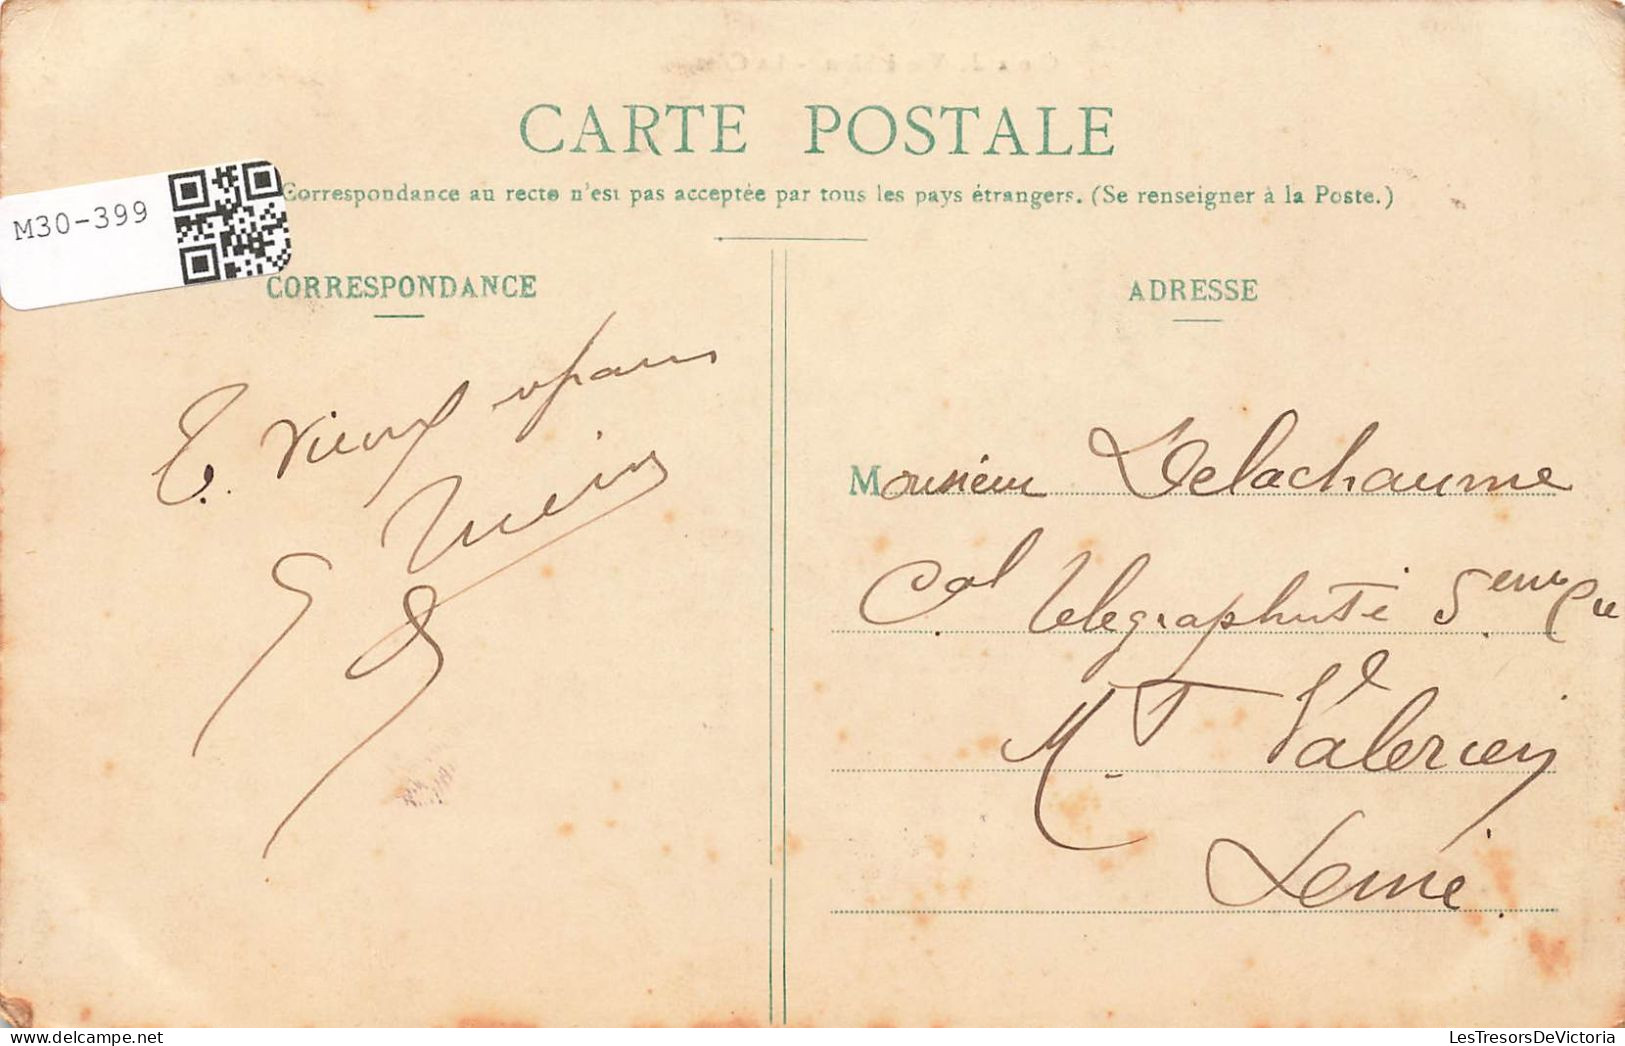 CARTE POSTALE
Correspondance au recto n'est pas acceptée par tous les pays étrangers. (Se renseigner à la Poste.)
M30-399
CORRESPONDANCE
ADRESSE
vieux
Monsieur Delachaume
Cal Telegraphiste 5eme Cie
Mt Valerien
Seine
LesTresorsDeVictoria